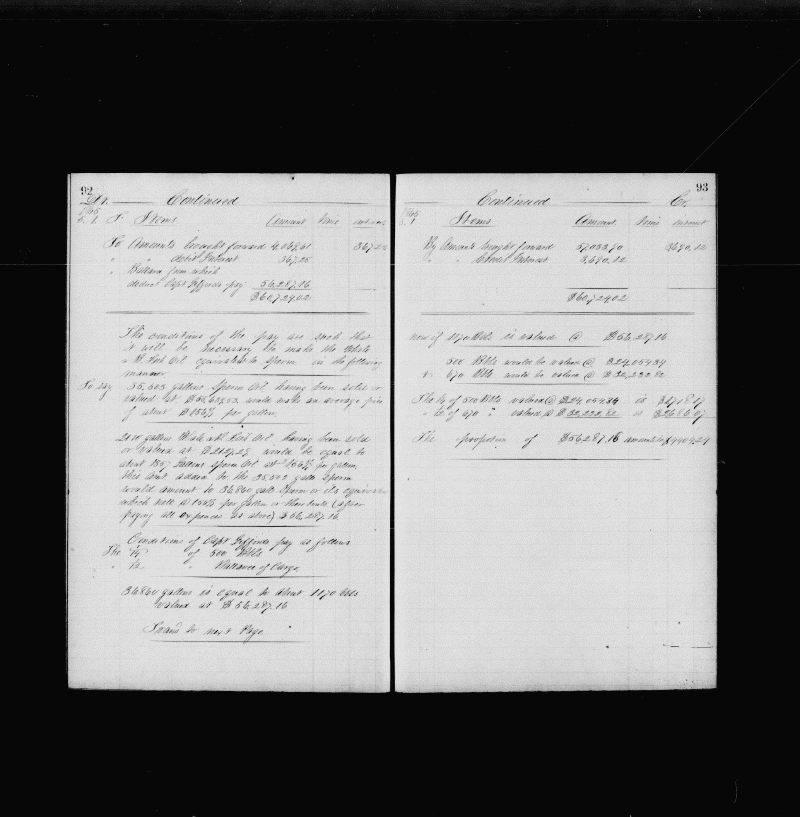 92
Dr. Continued
1865 Items Amount Time
To Amounts brought forward 4,069.61 367.25
" " debit Interest 367.25
" Ballance from which
deduct Capt Giffords pay 56,287.16
$60,724.02
The conditions of the pay are such that
it will be necessary to make the Whale
Oil equivalent to Sperm in the following
manner
To say 35,503 gallons Sperm Oil having been sold or
valued at would make an average price
of about per gallon
gallons Whale Oil having been sold
or valued at would be equal to
about 1357 Gallons Sperm Oil at per gallon
this amt added to the 35,503 galls Sperm
would amount to 36,860 galls Sperm or its equivalent
which per gallon or (after
paying all expenses as above) $56,287.16
Conditions of Capt Giffords pay as follows
The of 500 Bbls
" " Ballance of Cargo
36860 gallons is equal to about 1170 bbls
valued at $56,287.16
to next Page
93
Continued Cr.
1865 Items Amount Time Interest
By Amounts brought forward 57,033.90 3690.12
" " Credit Interest 3,690.12
$60,724.02
now if 1170 bbls is valued @ $56,287.16
500 Bbls would be valued @ $24,054.34
& 670 Bbls would be valued @ $32,232.82
The of 500 Bbls valued @ $24,054.34 is
" of 670 " valued @ $32,232.82 is
The proportion of $56,287.16 amounts to $4404.24